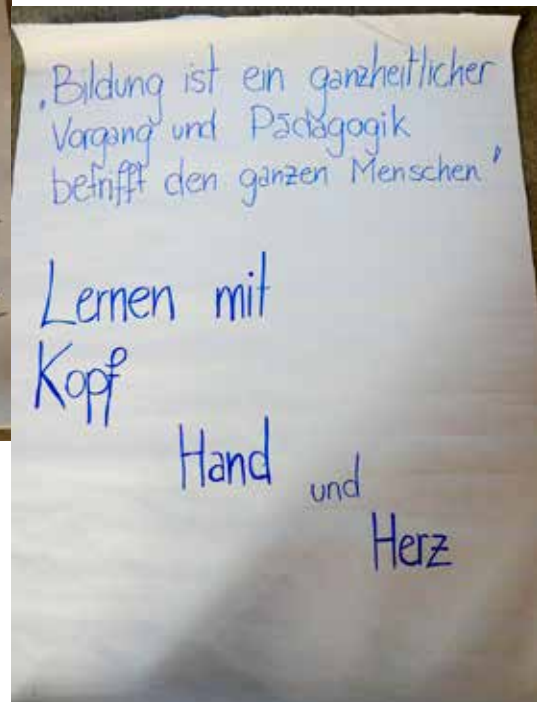 „Bildung ist ein ganzheitlicher
Vorgang und Pädagogik
betrifft den ganzen Menschen"
Lernen mit
Kopf
Hand und
Herz